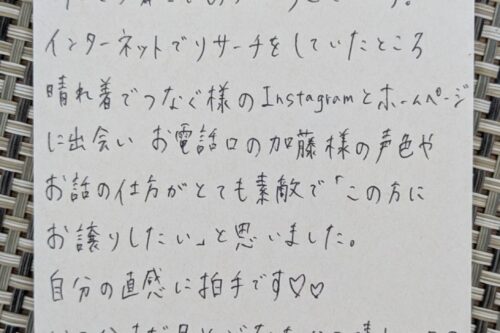 インターネットでリサーチをしていたところ
晴れ着でつなぐ様のInstagramとホームページ
に出会い お電話口の加藤様の声色や
お話の仕方がとても素敵で「この方に
お譲りしたい」と思いました。
自分の直感に拍手です♡♡